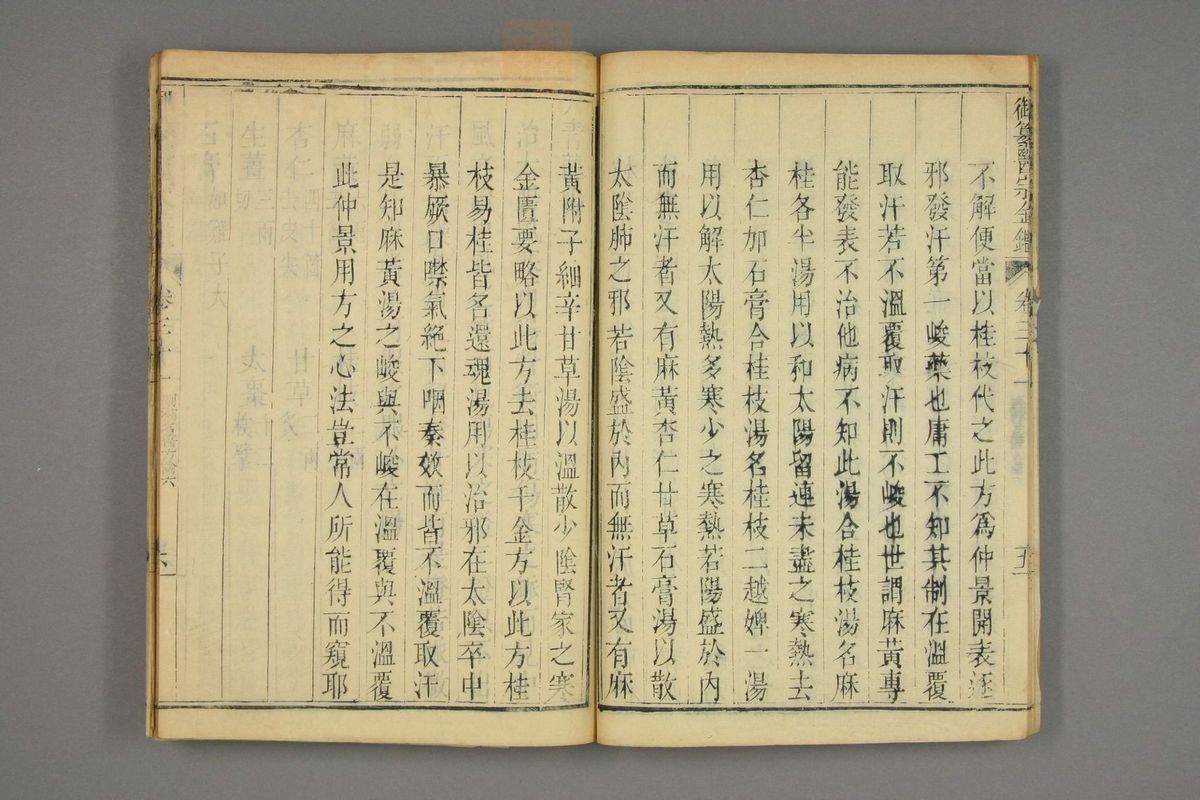 御纂醫宗金鑑
卷三十一
五
不解便當以桂枝代之此方為仲景開表逐
邪發汗第一峻藥也庸工不知其制在溫覆
取汗若不溫覆取汗則不峻也世謂麻黃專
能發表不治他病不知此湯合桂枝湯名麻
桂各半湯用以和太陽留連未盡之寒熱去
杏仁加石膏合桂枝湯名桂枝二越婢一湯
用以解太陽熱多寒少之寒熱若陽盛於內
而無汗者又有麻黃杏仁甘草石膏湯以散
太陰肺之邪若陰盛於內而無汗者又有麻
黃附子細辛甘草湯以溫散少陰腎家之寒
金匱要略以此方去桂枝千金方以此方桂
枝易桂皆名還魂湯用以治邪在太陰卒中
暴厥口噤氣絕下咽奏效而皆不溫覆取汗
是知麻黃湯之峻與不峻在溫覆與不溫覆
此仲景用方之心法豈常人所能得而窺耶
卷三十一
六